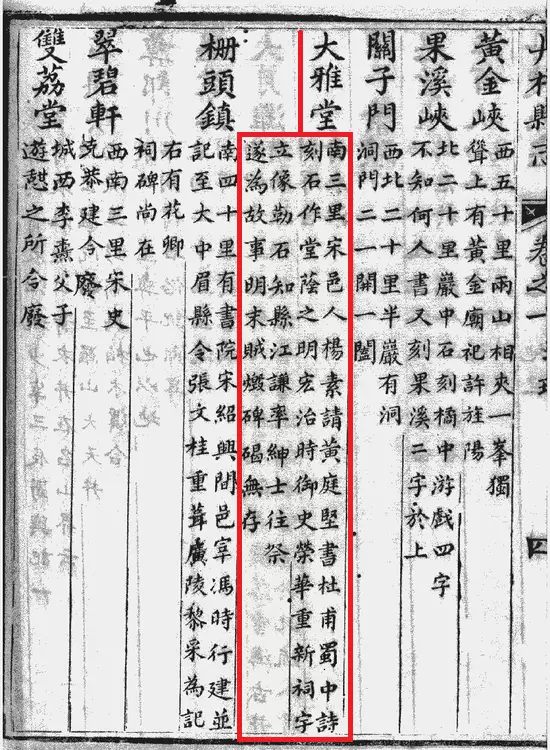 卷之一
四
黃金峽
西五十里兩山相夾一峯獨
聳上有黃金廟祀許旌陽
果溪峽
北二十里巖中石刻橋中游戲四字
不知何人書又刻果溪二字於上
關子門
西北二十里半巖有洞
洞門二一開一闔
大雅堂
南三里宋邑人楊素請黃庭堅書杜甫蜀中詩
刻石作堂蔭之明宏治時御史榮華重新祠宇
立像勒石知縣江謙率紳士往祭
遂為故事明末賊燬碑碣無存
柵頭鎮
南四十里有書院宋紹興間邑宰馮時行建並
記至大中眉縣令張文桂重葺廣陵黎采為記
右有花卿
祠碑尚在
翠碧軒
西南三里宋史
堯恭建今廢
雙荔堂
城西李燾父子
遊憇之所今廢